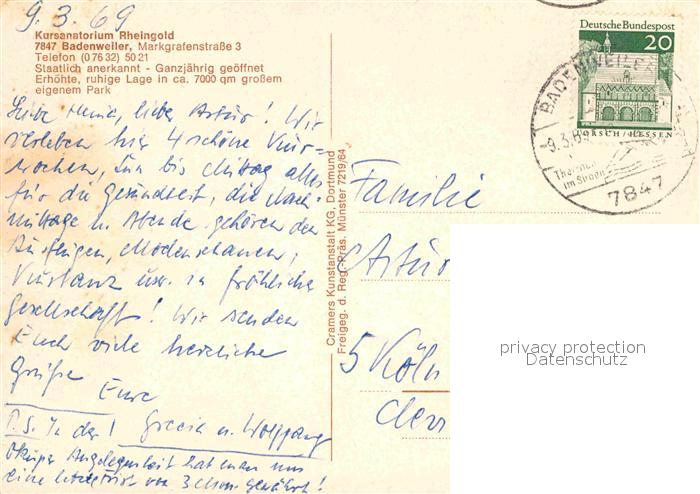 9.3.69
Kursanatorium Rheingold
7847 Badenweiler, Markgrafenstraße 3
Telefon (0 76 32) 50 21
Staatlich anerkannt - Ganzjährig geöffnet
Erhöhte, ruhige Lage in ca. 7000 qm großem
eigenem Park
Liebe lieber Artur! Wir
verleben hier 4 schöne Kur-
wochen, bis Mittag alles
für die Gesundheit, die Nach-
mittage u. Abende gehören den
Ausflügen, Modenschauen,
Kurtanz usw. in fröhlicher
Gesellschaft! Wir senden
Euch viele herzliche
Grüße Eure
u. Wolfgang
P.S. In der
Angelegenheit hat man uns
eine von 3 gewährt!
Cramers Kunstanstalt KG, Dortmund
Freigeg. d. Reg.-Präs. Münster 7219/64
Deutsche Bundespost
20
LORSCH/HESSEN
BADENWEILER
9.3.69
7847
Familie
Artur
5 Köln
privacy protection
Datenschutz